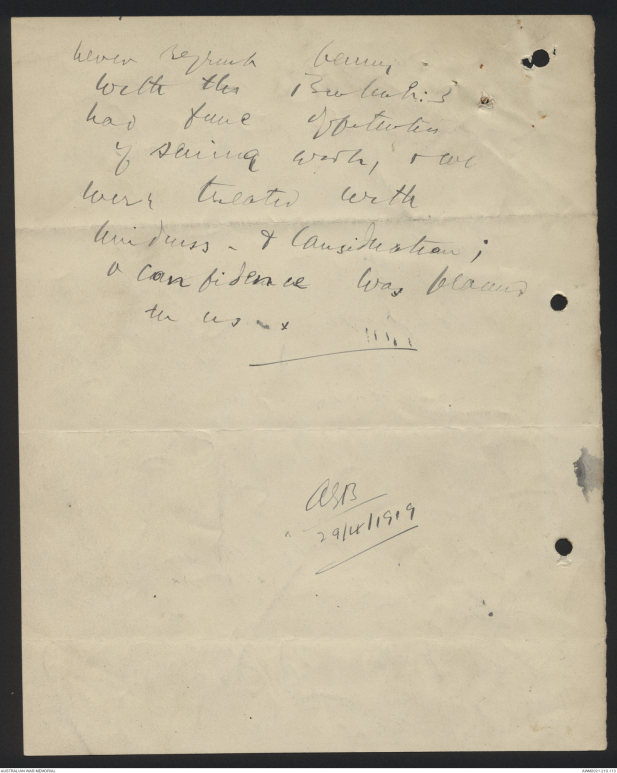 never regrets being
with the British & 
had fine opportunities
of seeing work, & we
were treated with
kindness - & consideration;
& confidence was placed
in us -
AGB
29/4/1919
AUSTRALIAN WAR MEMORIAL